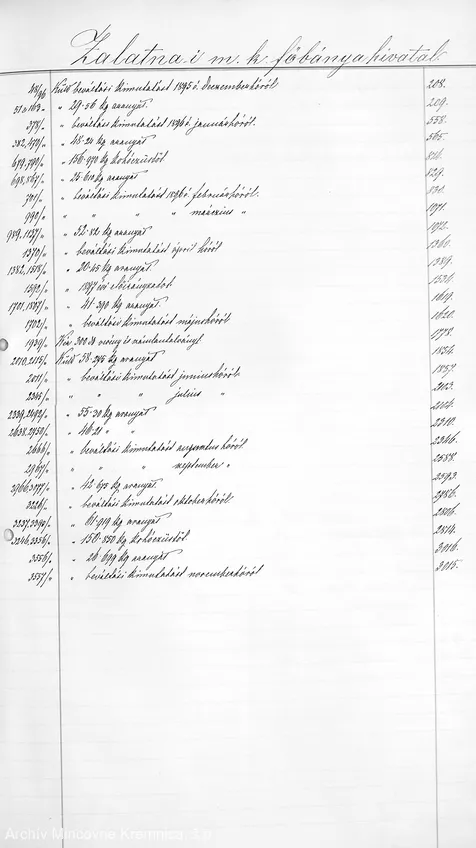 Zalatnai m. k. főbányahivatal.
48/96 Küld beváltási kimutatást 1895 é. Deczemberhóról 208.
51 " 163 " " 29·56 kg aranyat. 209.
378/" " beváltási kimutatást 1896 é. januárhóról. 558.
382, 470/" " 48·24 kg aranyat 565.
679, 790/" " 156·970 kg kohóezüstöt
698, 867/" " 25·610 kg aranyat 829.
701/" " beváltási kimutatást 1896 é. februárhóról. 830.
990/" " " " " márczius " 1071.
989, 1137/" " 32·82 kg aranyat
1370/" " beváltási kimutatást április hóról 1360.
1382, 1518/" " 20·45 kg aranyat. 1389.
1590/" " 1897 évi előirányzatot 1536.
1701, 1847/" " 41·390 kg aranyat. 1619.
1702/" " beváltási kimutatást májushóról. 1620.
1934/" Kér 300 db
2010, 2115/" Küld 58·245 kg aranyat 1834.
2011/" " beváltási kimutatást juniushóról. 1837.
2345/" " " " július "
2339, 2492/" " 55·30 kg aranyat
2638, 2850/" " 46·21 " " 2310.
2666/" " beváltási kimutatást augusztus hóról 2346.
2967/" " " " szeptember " 2588.
2966, 3177/" " 42·675 kg aranyat. 2593.
3226/" " beváltási kimutatást oktoberhóról 2786.
3237, 3340/" " 61·919 kg aranyat 2806.
3246, 3356/" " 150·850 kg kohóezüstöt 2814.
3556/" " 26·699 kg aranyat 3016.
3557/" " beváltási kimutatást novemberhóról 3015.
Archív Mincovne Kremnica, š.p.